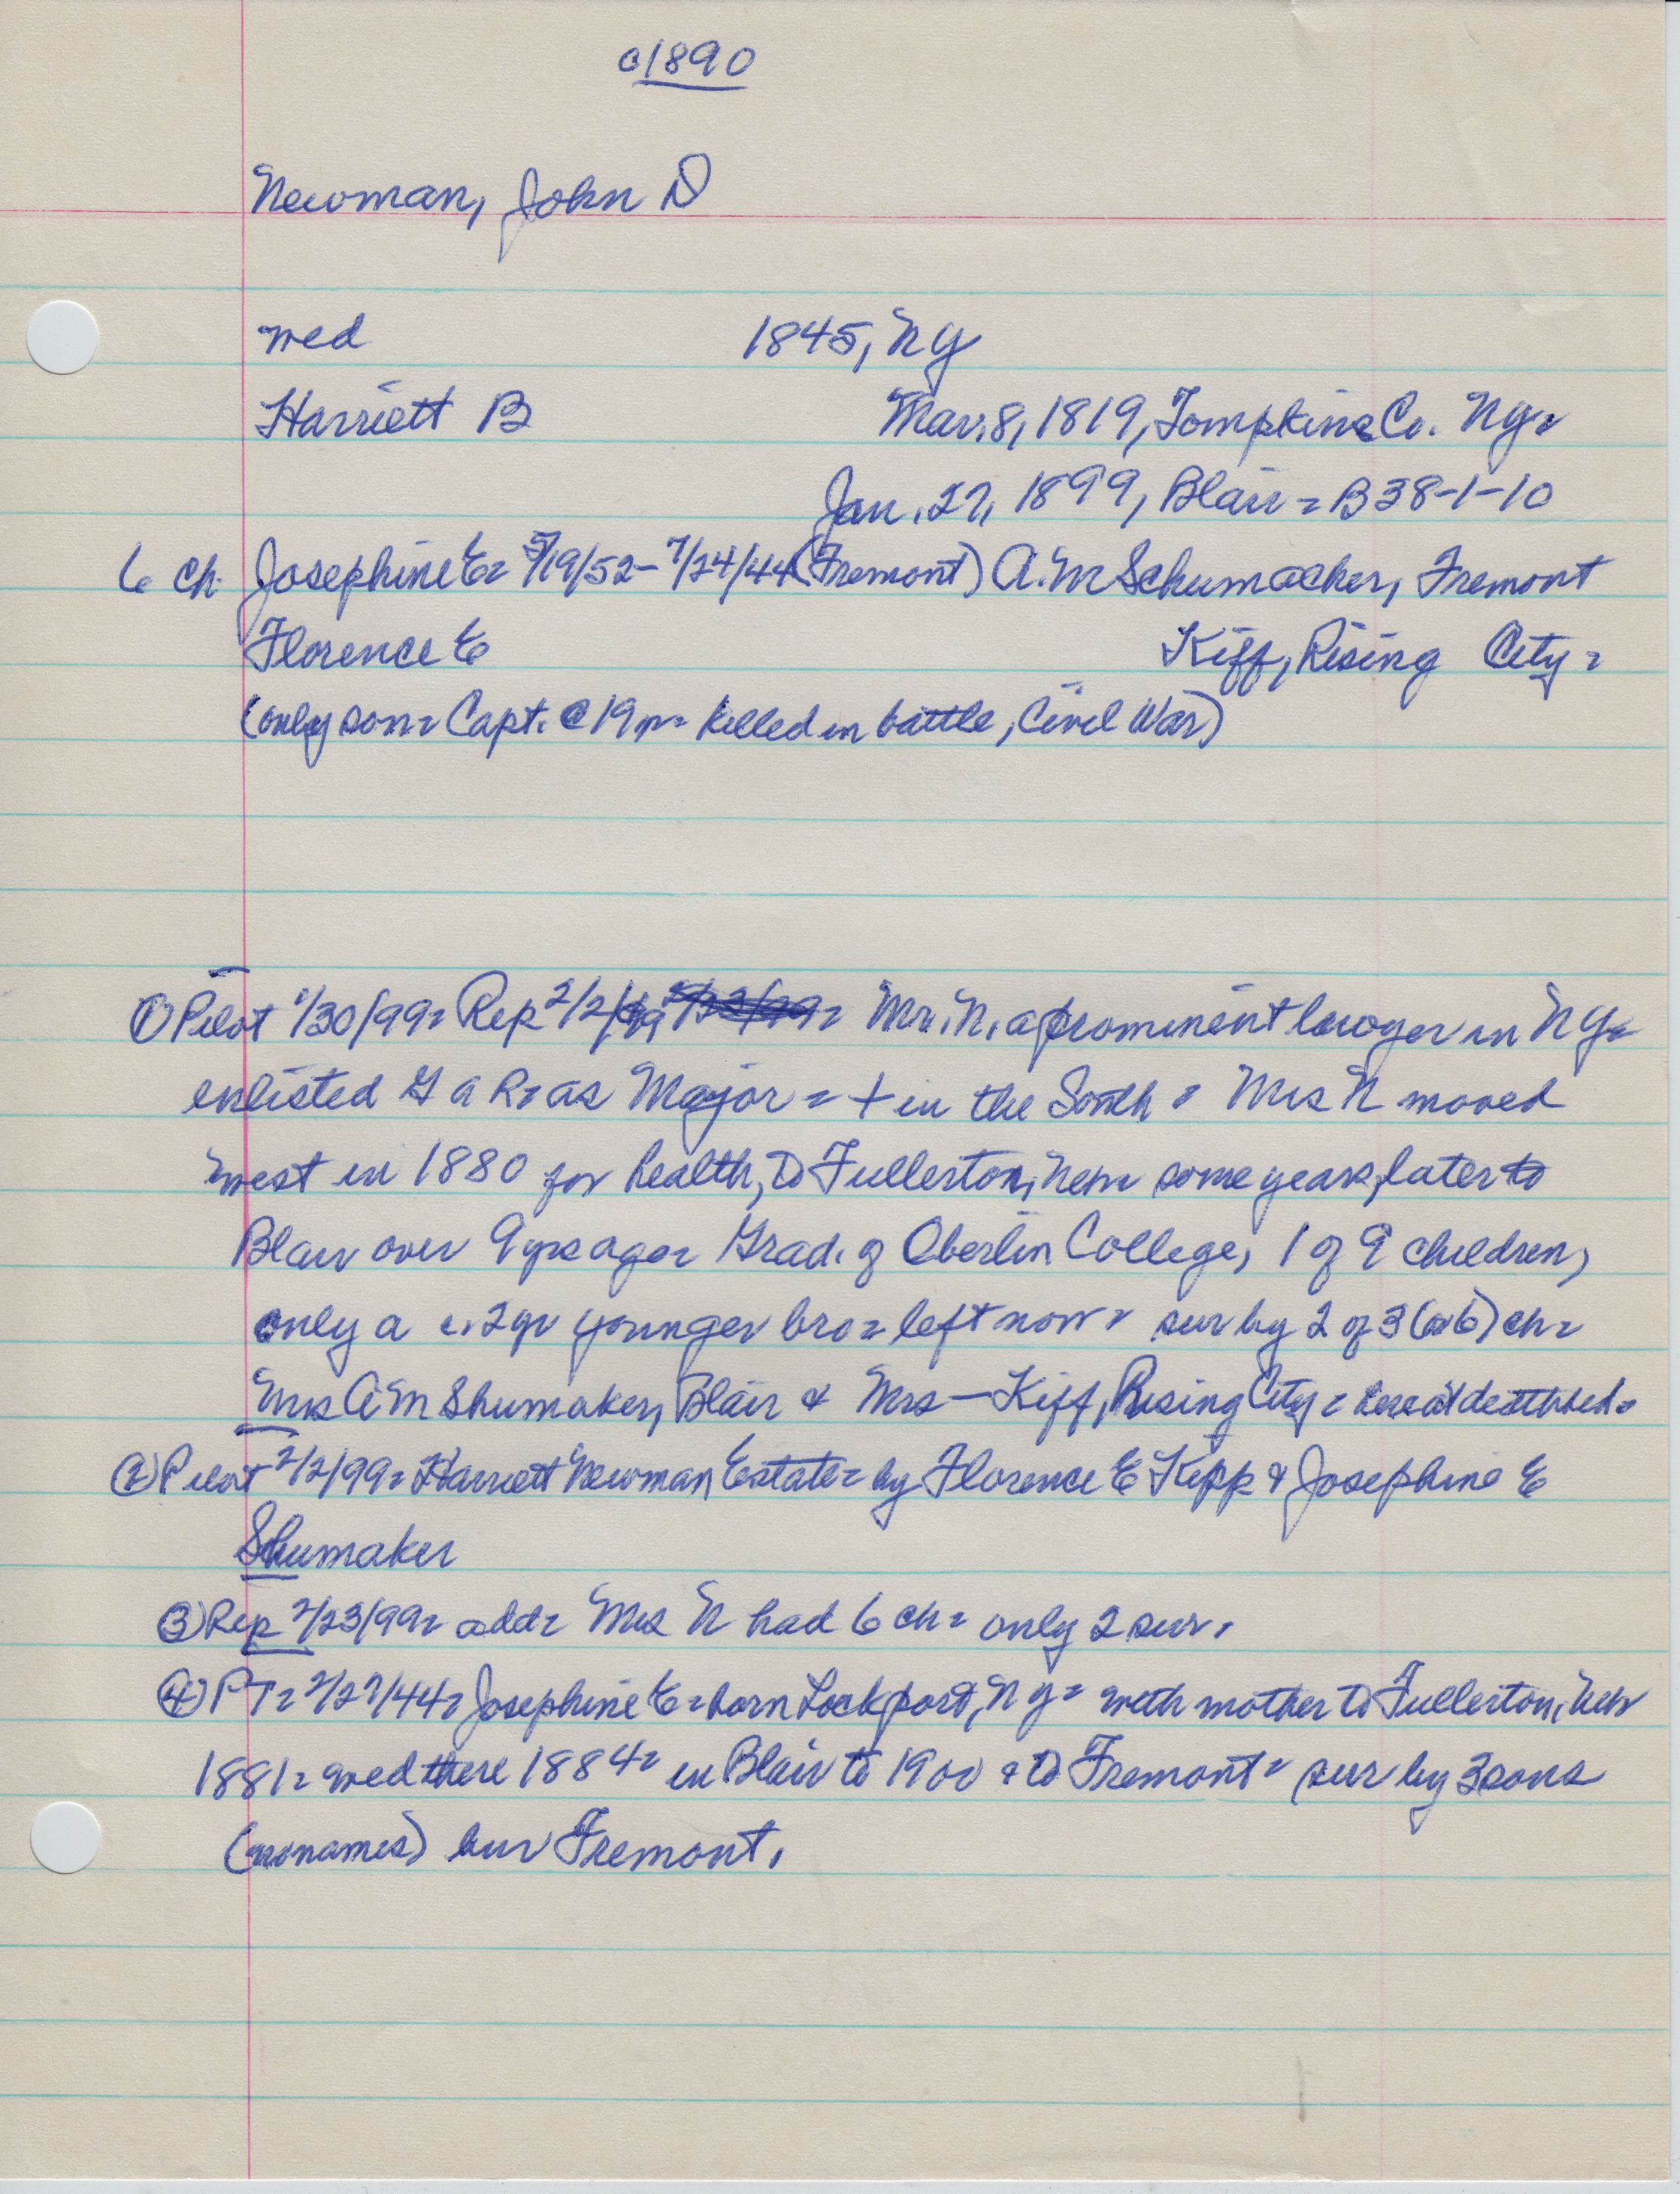 c1890
Newman, John D
wed 1845, NY
Harriett B Mar. 8, 1819, Tompkins Co. NY=
Jan. 27, 1899, Blair = B38-1-10
6 ch. Josephine E= 5/19/52-7/24/44 (Fremont) A. M Schumacker, Fremont
Florence E Kiff, Rising City=
(only son= Capt. @ 19 killed in battle, Civil War)
① Pilot 1/30/99= Rep 2/2/99 = Mr. N. a prominent lawyer in NY=
enlisted G A R= as Major = + in the South = Mrs N moved
west in 1880 for health, to Fullerton, Neb= some years later to
Blair over 9 yrs ago= Grad. of Oberlin College, 1 of 9 children,
only a c. 2 yr younger bro= left now= sur by 2 of 3 (or 6) ch=
Mrs A M Shumaker, Blair & Mrs — Kiff, Rising City = here at deathbed=
② Pilot 2/2/99= Harriett Newman Estate= by Florence E Kipp & Josephine E
Shumaker
③ Rep 2/23/99= add= Mrs N had 6 ch= only 2 sur.
④ PT= 7/27/44= Josephine E= born Lockport, NY= with mother to Fullerton, Neb
1881= wed there 1884= in Blair to 1900 & to Fremont= sur by 3 sons
(no names) bur Fremont.